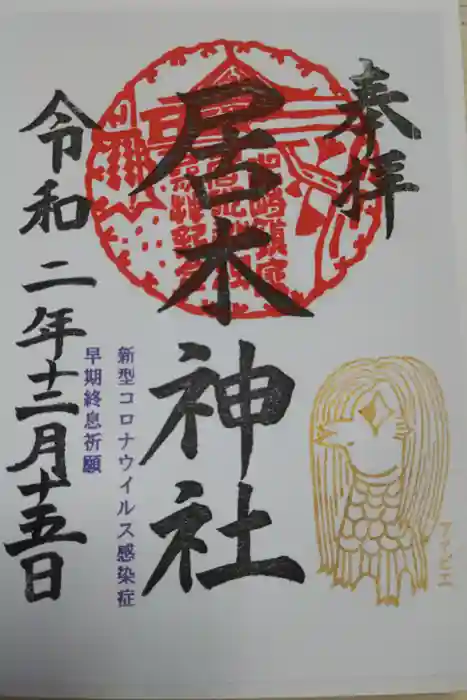 奉拝
居木神社
令和二年十二月十五日
新型コロナウイルス感染症
早期終息祈願
アマビエ